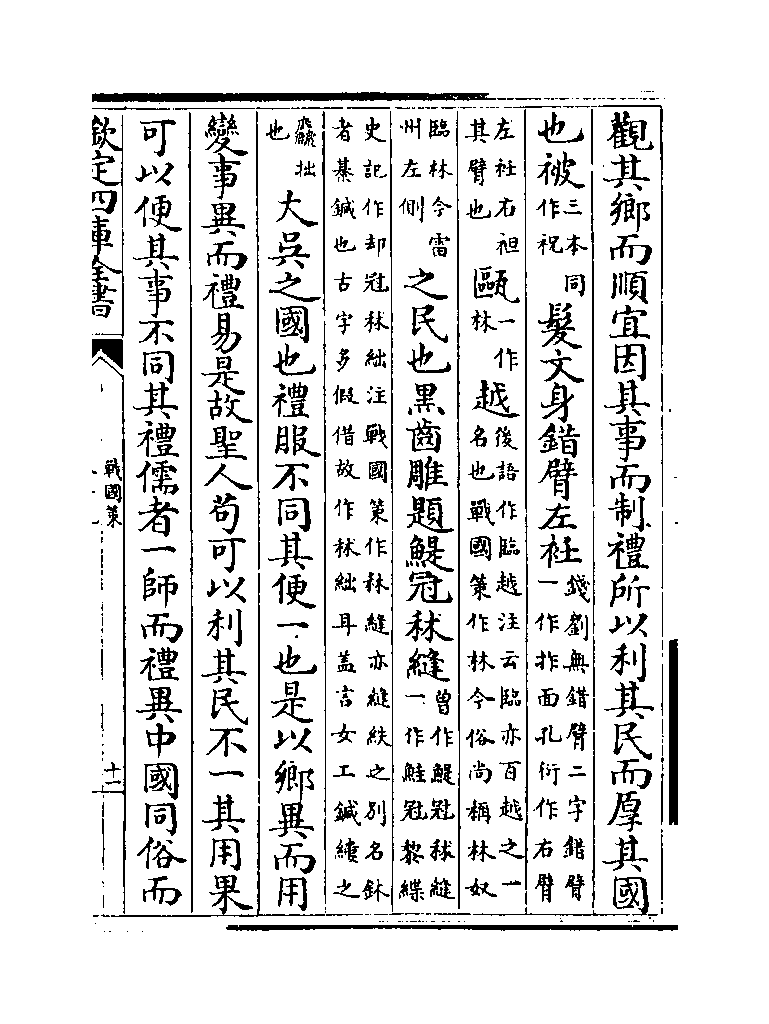 觀其鄉而順宜因其事而制禮所以利其民而厚其國
也被三本同作祝髮文身錯臂左衽錢劉無錯臂二字錯臂一作拃面孔衍作右臂
左社右袒其臂也甌一作林越後語作臨越注云臨亦百越之一名也戰國策作林今俗尚稱林奴
臨林今雷州左側之民也黒齒雕題鯷冠秫縫曾作鯷冠秫縫一作鮭冠黎緤
史記作却冠秫絀注戰國策作秫縫亦縫紩之别名鉥者綦鍼也古字多假借故作秫絀耳盖言女工鍼縷之
麤拙也大吳之國也禮服不同其便一也是以鄉異而用
變事異而禮易是故聖人苟可以利其民不一其用果
可以便其事不同其禮儒者一師而禮異中國同俗而
欽定四庫全書
戰國策
十一